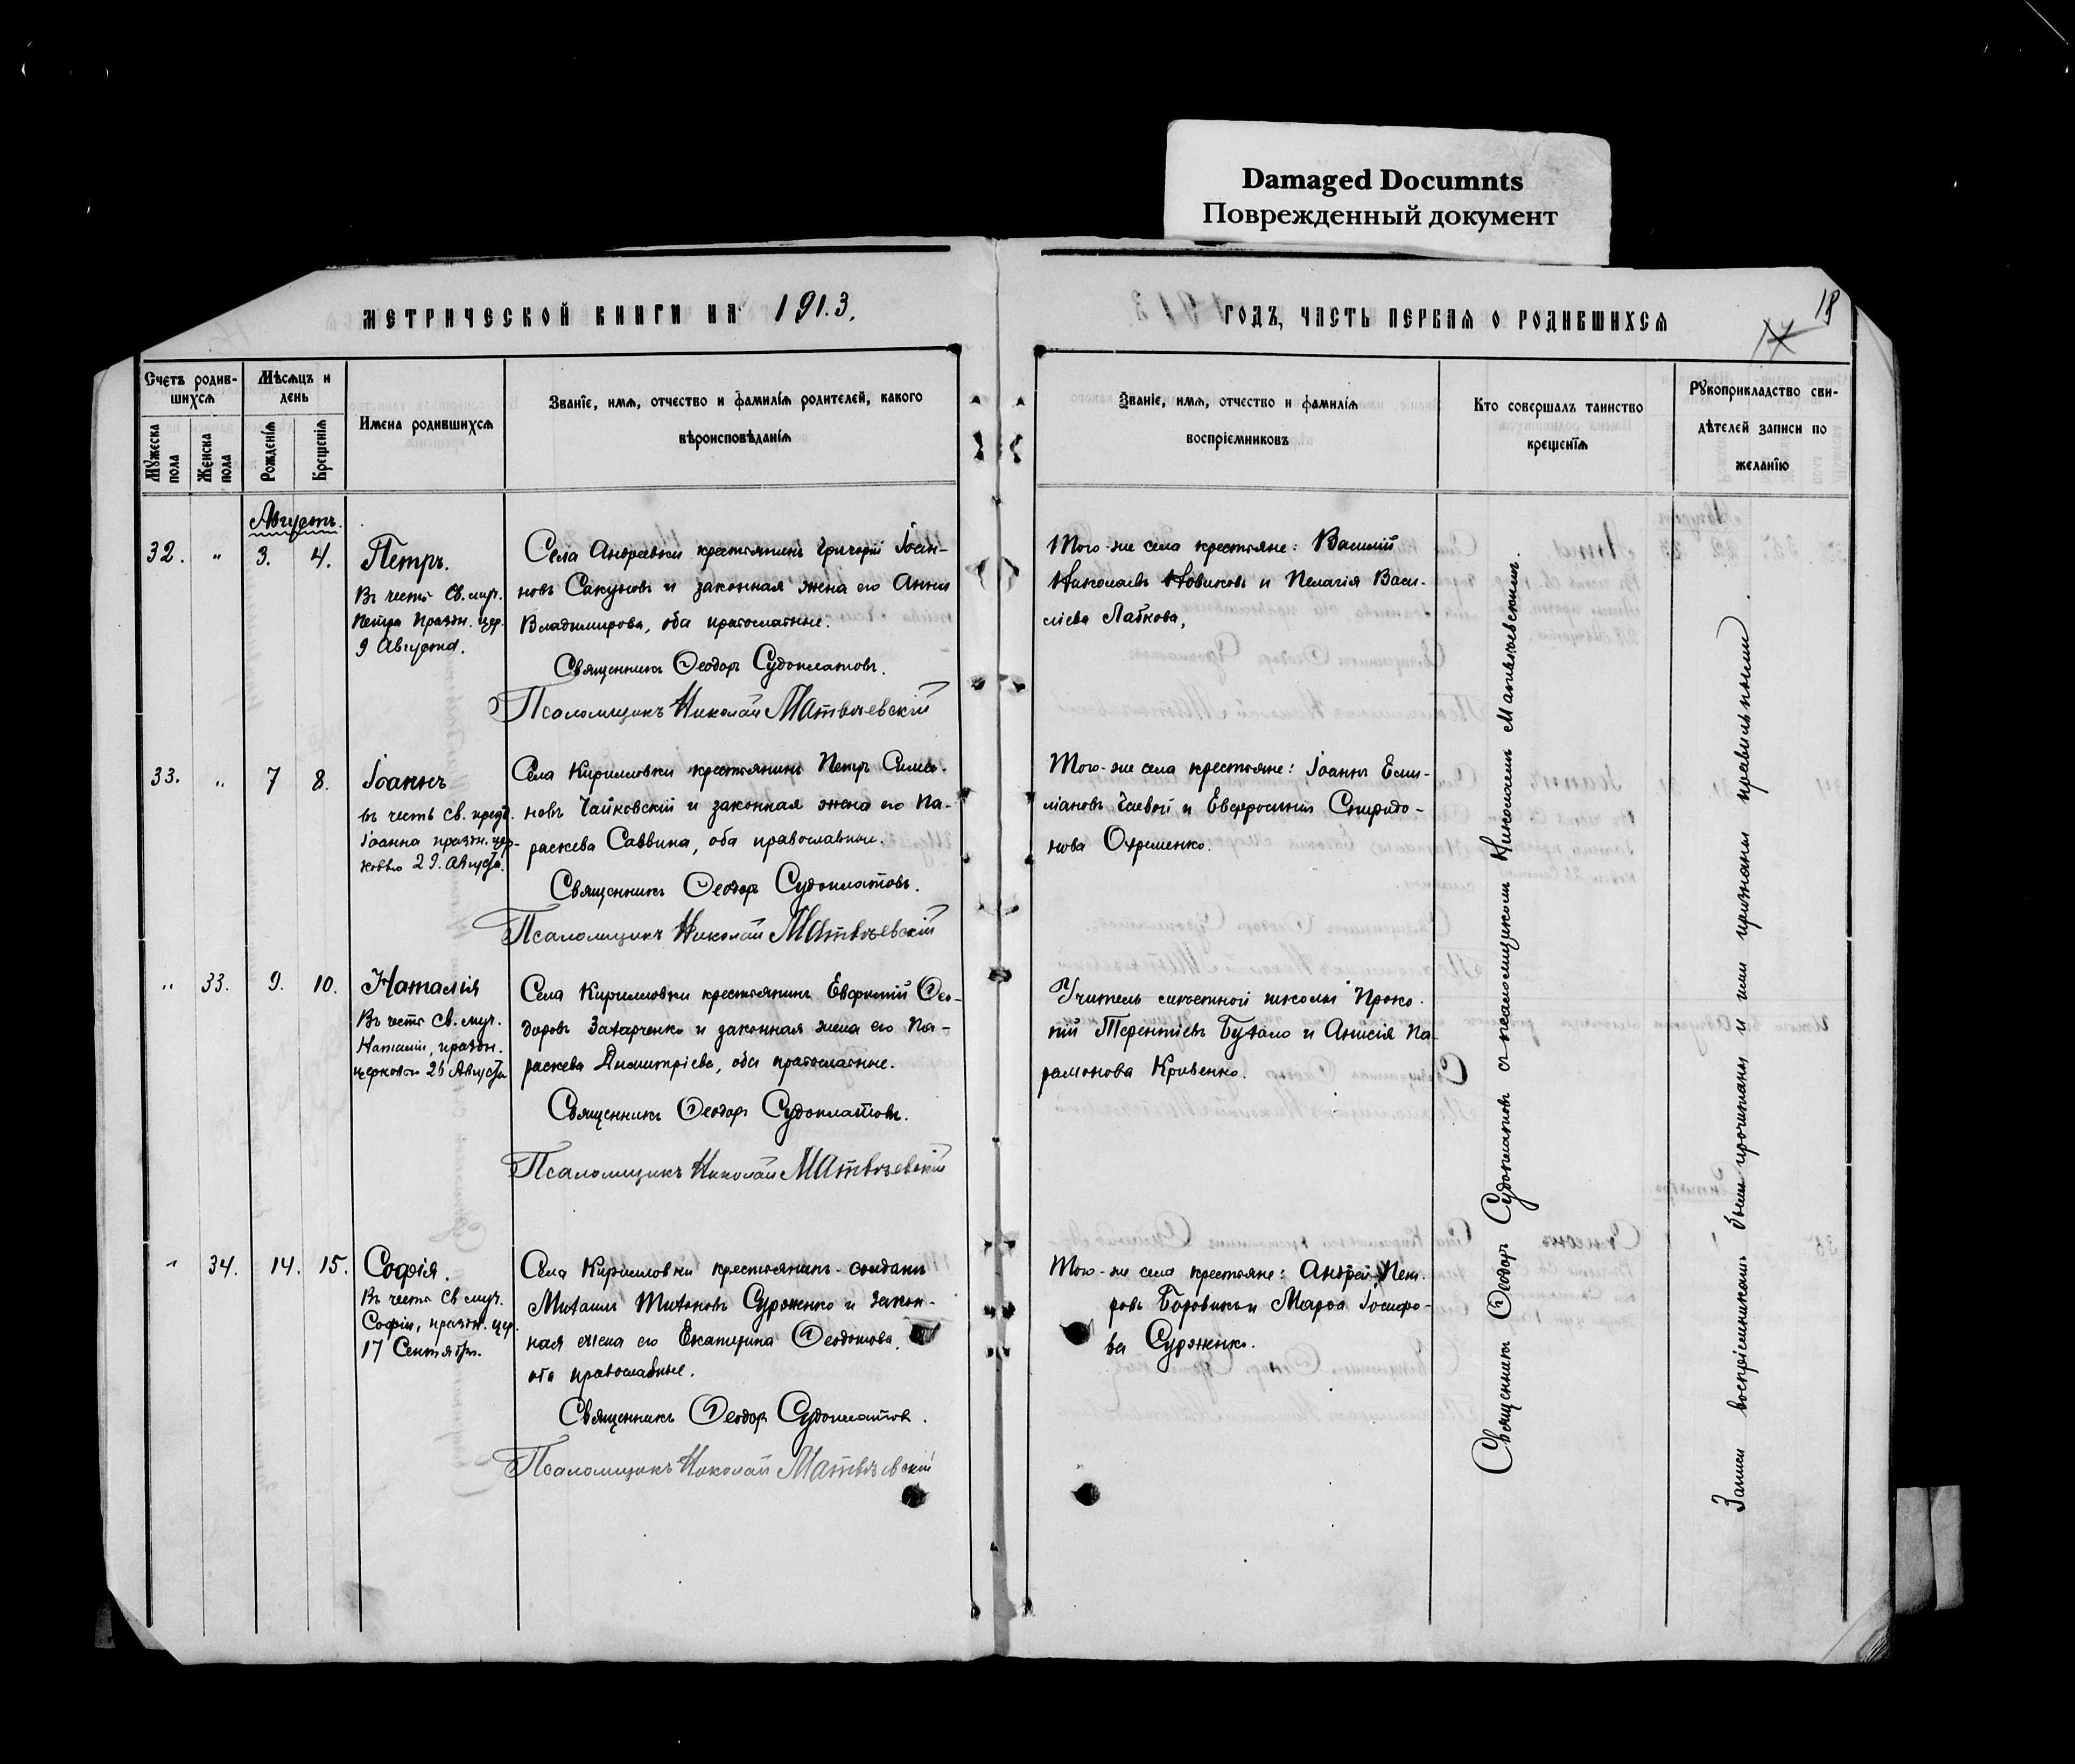 Damaged Documnts
Поврежденный документ
МЕТРИЧЕСКОЙ КНИГИ НА 1913.
ГОДЪ, ЧАСТЬ ПЕРВАЯ О РОДИВШИХСЯ
18
17
Счетъ родив-
шихся
Мужеска пола
Женска пола
Мѣсяцъ и
день
Рожденія
Крещенія
Имена родившихся
Званіе, имя, отчество и фамилія родителей, какого
вѣроисповѣданія
Званіе, имя, отчество и фамилія
воспріемниковъ
Кто совершалъ таинство
крещенія
Рукоприкладство сви-
дѣтелей записи по
желанію
Августъ.
32. " 3. 4.
Петръ.
Въ честь Св. муч.
Петра празн. цер.
9 Августа.
Села Андреевки крестьянинъ Григорій Іоан-
новъ Сакуновъ и законная жена его Анна
Владимирова, оба православные.
Священникъ Ѳеодоръ Судоплатовъ.
Псаломщикъ Николай Матвѣевскій
Того-же села крестьяне: Василій
Николаевъ Новиковъ и Пелагія Васи-
ліева Лабкова,
33. " 7 8.
Іоаннъ
въ честь Св. пред.
Іоанна празн. цер-
ковью 29. Августа.
Села Кирилловки крестьянинъ Петръ Симео-
новъ Чайковскій и законная жена его Па-
раскева Саввина, оба православные.
Священникъ Ѳеодоръ Судоплатовъ.
Псаломщикъ Николай Матвѣевскій
Того-же села крестьяне: Іоаннъ Еми-
ліановъ Гаевой и Евфросинія Спиридо-
нова Охрешенко.
" 33. 9. 10.
Наталія
Въ честь Св. муч.
Наталіи, празн.
церковью 26 Августа
Села Кирилловки крестьянинъ Евфимій Ѳео-
доровъ Захарченко и законная жена его Па-
раскева Димитріева, оба православные.
Священникъ Ѳеодоръ Судоплатовъ.
Псаломщикъ Николай Матвѣевскій
Учитель школы Проко-
пій Терентіевъ Бухало и Анисія Па-
рамонова Кривенко.
" 34. 14. 15.
Софія.
Въ честь Св муч.
Софіи, празн. цер.
17 Сентября.
Села Кирилловки крестьянинъ-солдатъ
Михаилъ Тихоновъ Сурженко и закон-
ная жена его Екатерина Ѳеодотова,
оба православные.
Священникъ Ѳеодоръ Судоплатовъ.
Псаломщикъ Николай Матвѣевскій
Того-же села крестьяне: Андрей Пет-
ровъ Боровикъ и Марѳа Іосифо-
ва Сурженко.
Священникъ Ѳеодоръ Судоплатовъ съ псаломщикомъ Николаемъ Матвѣевскимъ.
Записи воспріемникамъ были прочитаны и ими признаны правильными.